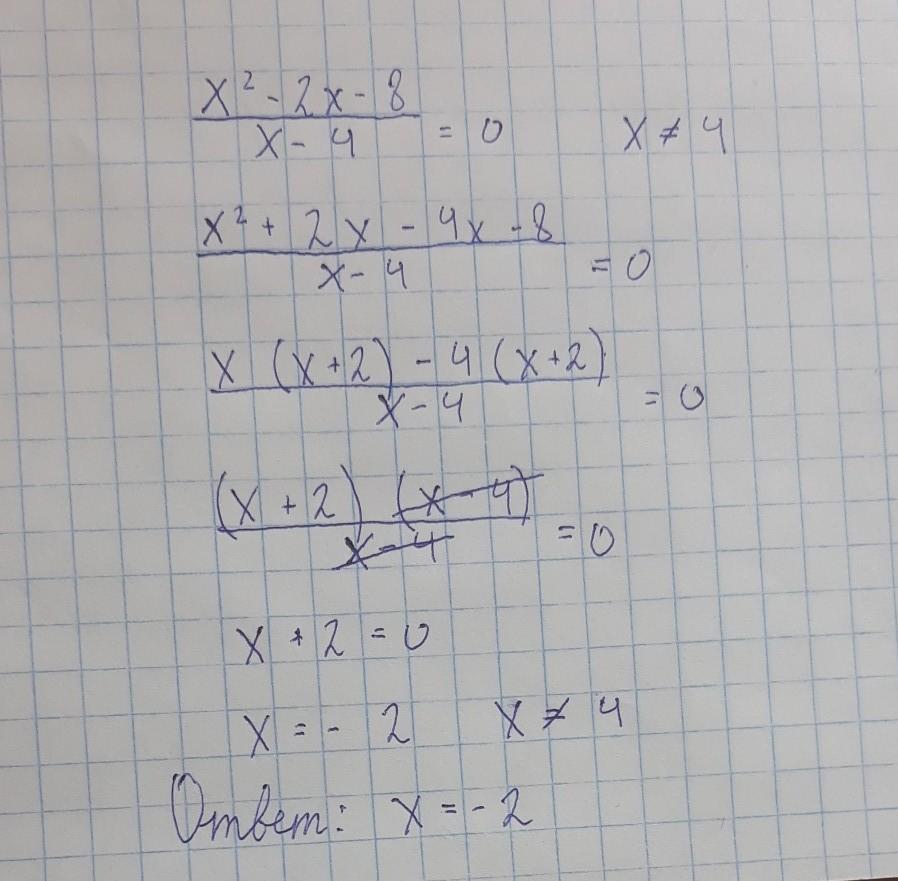 x² - 2x - 8
x - 4 = 0 x ≠ 4
x² + 2x - 4x - 8
x - 4 = 0
x (x + 2) - 4 (x + 2)
x - 4 = 0
(x + 2) (x - 4)
x - 4 = 0
x + 2 = 0
x = - 2 x ≠ 4
Ответ: x = - 2